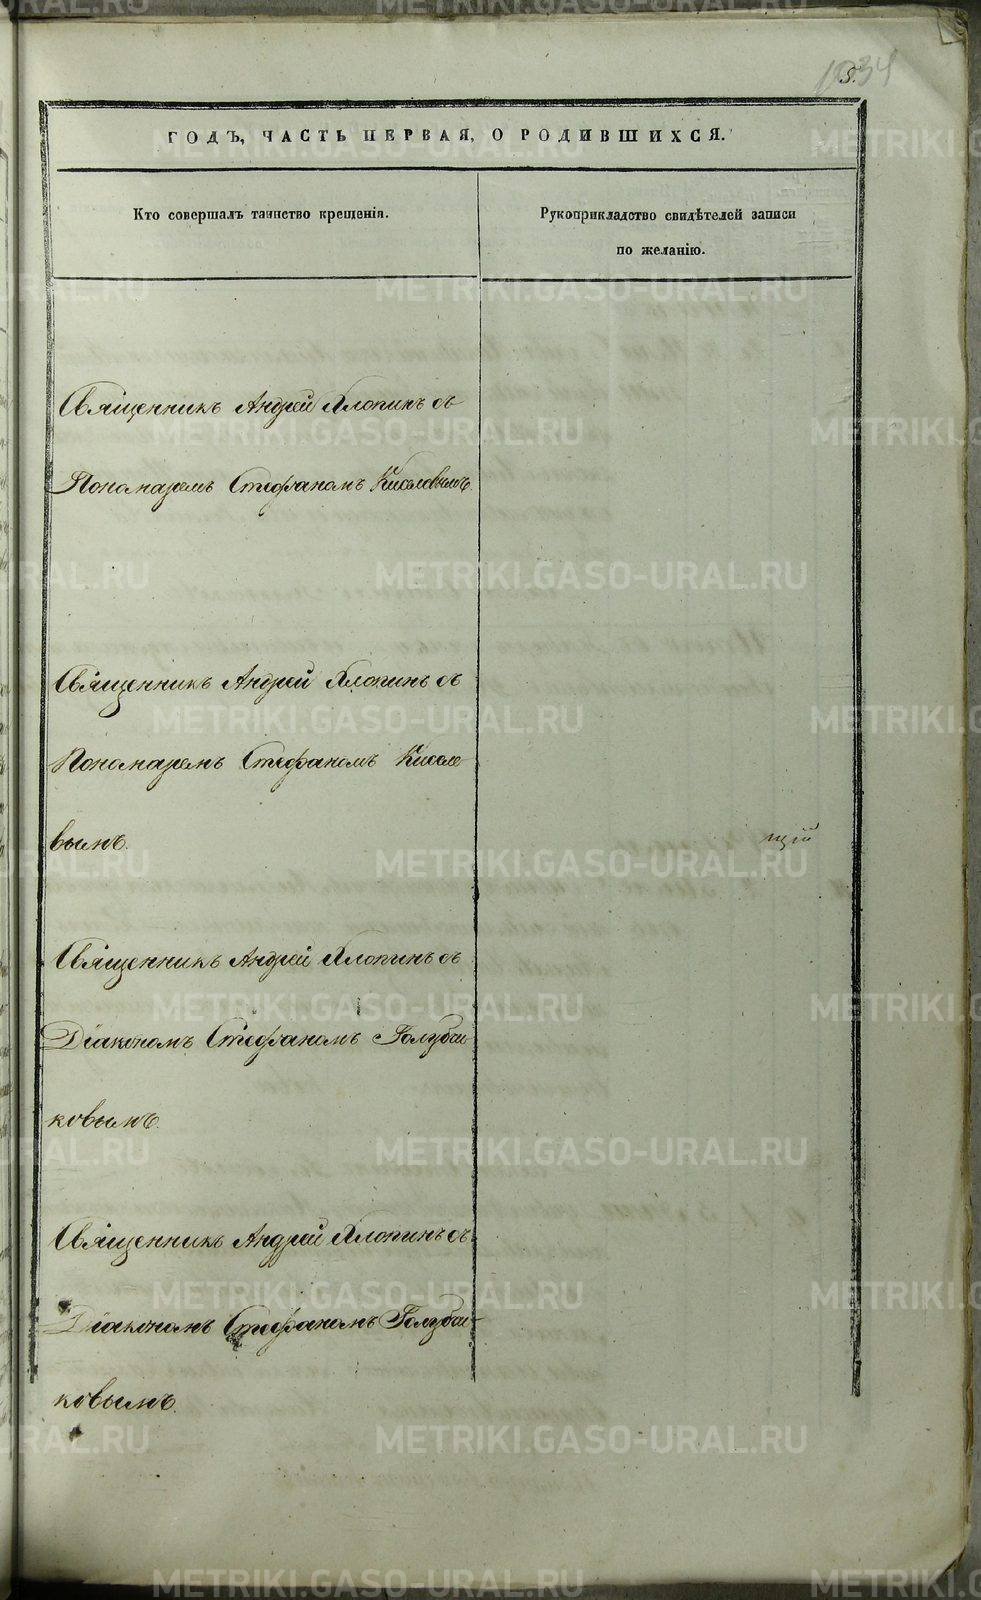 1034
5.
ГОДЪ, ЧАСТЬ ПЕРВАЯ, О РОДИВШИХСЯ.
Кто совершалъ таинство крещенія.
Рукоприкладство свидѣтелей записи
по желанію.
Священникъ Андрей Хлопинъ съ
Пономаремъ Стефаномъ Киселевымъ.
Священникъ Андрей Хлопинъ съ
Пономаремъ Стефаномъ Киселе
вымъ.
щій
Священникъ Андрей Хлопинъ съ
Діакономъ Стефаномъ Голубчи
ковымъ.
Священникъ Андрей Хлопинъ съ
Діакономъ Стефаномъ Голубчи
ковымъ.
METRIKI.GASO-URAL.RU